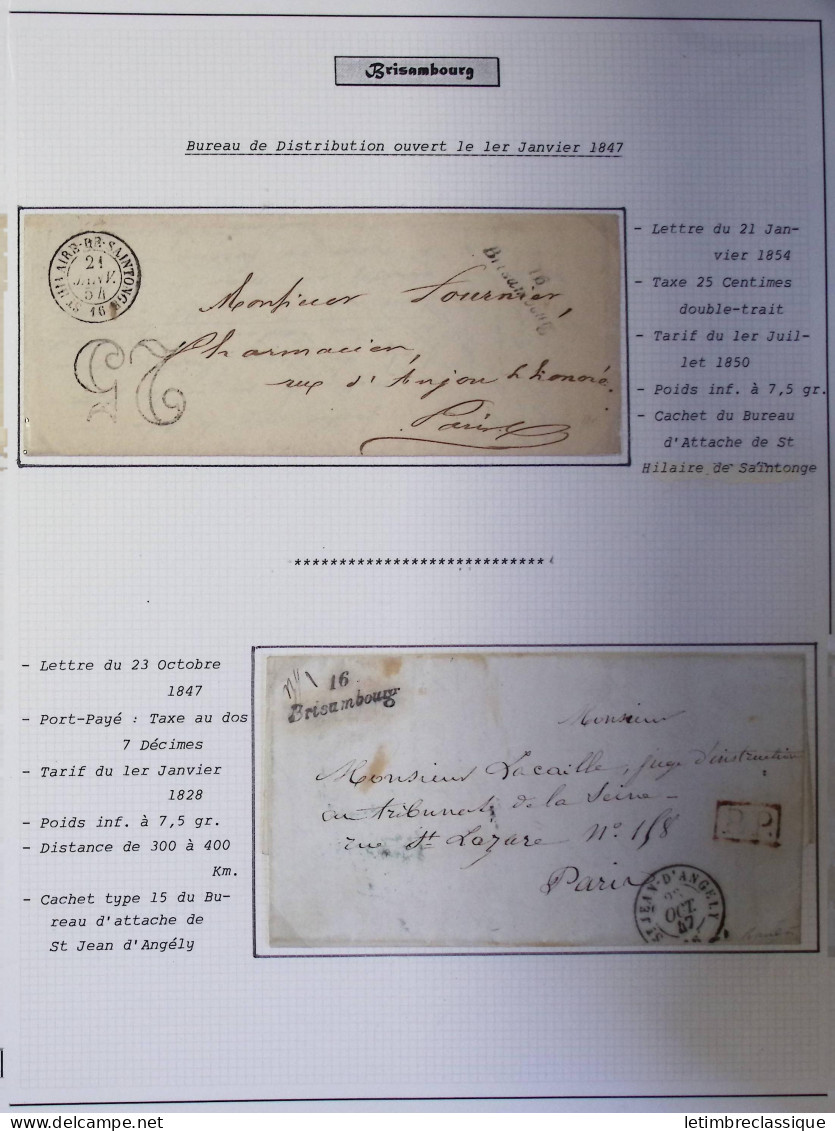 Brisambourg
Bureau de Distribution ouvert le 1er Janvier 1847
ST HILAIRE-DE-SAINTONGE
21
JANV.
54
16
16
Brisambourg
25
Monsieur Fournier,
Pharmacien,
rue d'Anjou St honoré.
Paris
- Lettre du 21 Jan-
vier 1854
- Taxe 25 Centimes
double-trait
- Tarif du 1er Juil-
let 1850
- Poids inf. à 7,5 gr.
- Cachet du Bureau
d'Attache de St
Hilaire de Saintonge
****************************
- Lettre du 23 Octobre
1847
- Port-Payé : Taxe au dos
7 Décimes
- Tarif du 1er Janvier
1828
- Poids inf. à 7,5 gr.
- Distance de 300 à 400
Km.
- Cachet type 15 du Bu-
reau d'attache de
St Jean d'Angély
n° 1
16
Brisambourg
Monsieur
Monsieur Lacaille, juge d'instruction
au tribunal de la Seine
rue St Lazare N°
Paris
P.P.
ST JEAN-D'ANGELY
OCT.
47
delcampe.net
letimbreclassique